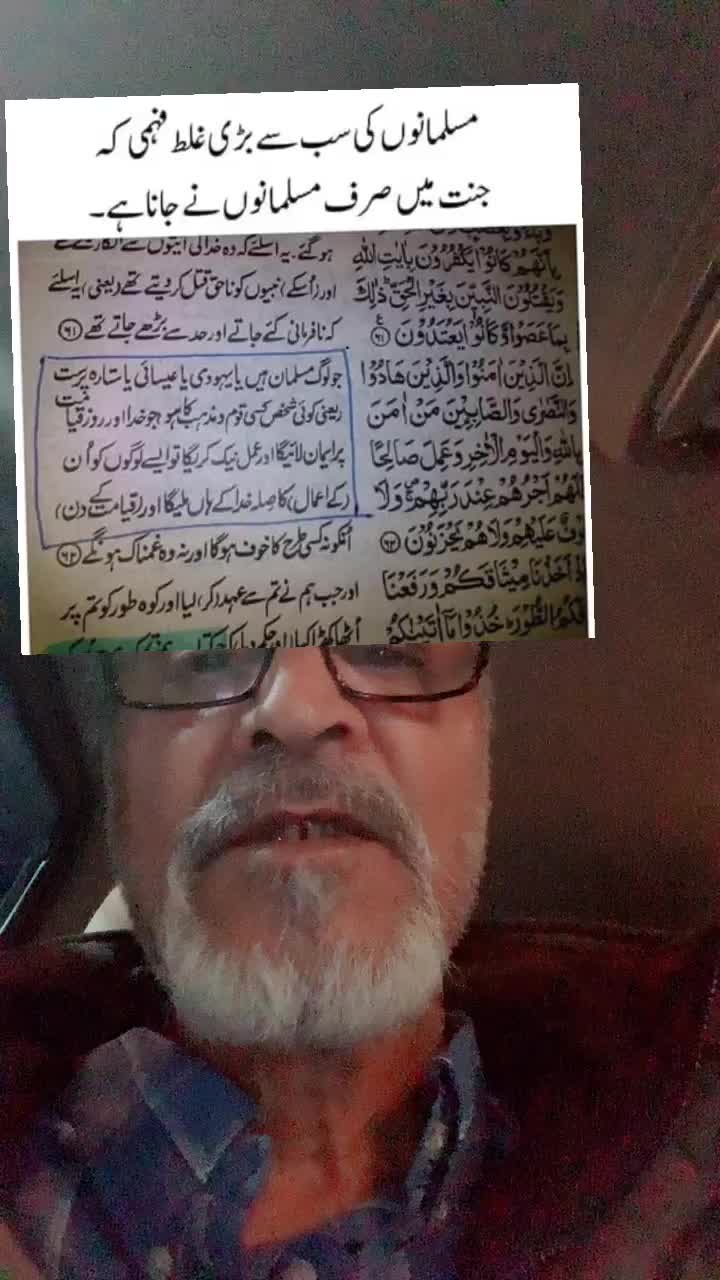 مسلمانوں کی سب سے بڑی غلط فہمی کہ
جنت میں صرف مسلمانوں نے جانا ہے۔
بِاَنَّهُمْ كَانُوْا يَكْفُرُوْنَ بِاٰيٰتِ اللّٰهِ
وَيَقْتُلُوْنَ النَّبِيّٖنَ بِغَيْرِ الْحَقِّ ذٰلِكَ
بِمَا عَصَوْا وَّكَانُوْا يَعْتَدُوْنَ ﴿٦١﴾
اِنَّ الَّذِيْنَ اٰمَنُوْا وَالَّذِيْنَ هَادُوْا
وَالنَّصٰرٰى وَالصَّابِـِٕيْنَ مَنْ اٰمَنَ
بِاللّٰهِ وَالْيَوْمِ الْاٰخِرِ وَعَمِلَ صَالِحًا
فَلَهُمْ اَجْرُهُمْ عِنْدَ رَبِّهِمْ وَلَا
خَوْفٌ عَلَيْهِمْ وَلَا هُمْ يَحْزَنُوْنَ ﴿٦٢﴾
اَخَذْنَا مِيْثَاقَكُمْ وَرَفَعْنَا
فَوْقَكُمُ الطُّوْرَ خُذُوْا مَآ اٰتَيْنٰكُمْ
ہو گئے۔ یہ اسلئے کہ وہ خدا کی آیتوں سے انکار کرتے تھے
اور (اُسکے) نبیوں کو ناحق قتل کر دیتے تھے (یعنی) یہ اسلئے
کہ نافرمانی کئے جاتے اور حد سے بڑھے جاتے تھے ﴿٦١﴾
جو لوگ مسلمان ہیں یا یہودی یا عیسائی یا ستارہ پرست
(یعنی کوئی شخص کسی قوم و مذہب کا ہو) جو خدا اور روز قیامت
پر ایمان لائیگا اور عمل نیک کریگا تو ایسے لوگوں کو اُن
(کے اعمال) کا صلہ خدا کے ہاں ملیگا اور (قیامت کے دن)
اُنکو نہ کسی طرح کا خوف ہوگا اور نہ وہ غمناک ہونگے ﴿٦٢﴾
اور جب ہم نے تم سے عہد (کر) لیا اور کوہ طور کو تم پر